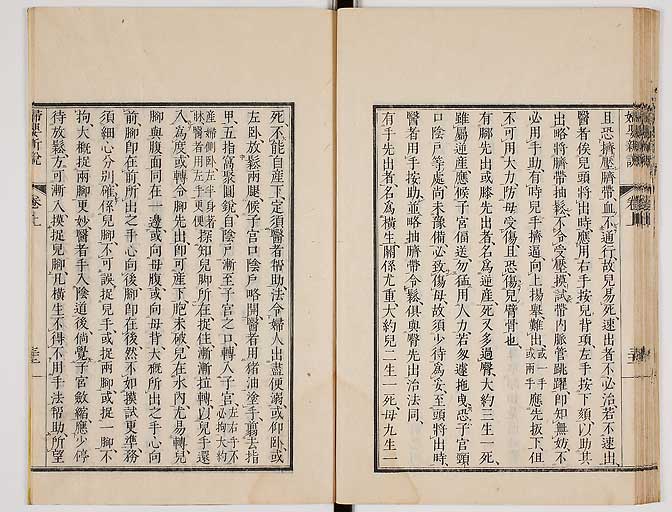 且恐擠壓臍帶血不通行故兒易死速出者不必治若不速出
醫者俟兒頭將出時應用右手按兒背項左手按下頦以助其
出略將臍帶抽鬆不令受壓摸試帶內脈管跳躍卽知無妨不
必用手助有時兒手擠逼向上揚舉難出或一手或兩手應先扳下但
不可用大力防母受傷且恐傷兒臂骨也
有腳先出或膝先出者名爲逆產死又多過臀大約三生一死
雖屬逆產應候子宮偪送勿猛用人力若匆遽拖曳恐子宮頸
口陰戶等處尚未豫備必致傷母故須少待爲妥至頭將出時
醫者用手按助並略抽臍帶令鬆俱與臀先出治法同
有手先出者名爲橫生關係尤重大約兒二生一死母九生一
死不能自產下定須醫者幫助法令婦人出盡便溺或仰臥或
左臥放鬆兩腿候子宮口陰戶略開醫者用豬油塗手剪去指
甲五指窩聚圓銳自陰戶漸至子宮之口轉入子宮左右手不必拘大約
產婦側臥左半身者醫者用左手更便探知兒腳所在捉住漸漸拉轉以兒手還
入爲度或轉令腳先出卽可產下胞未破兒在水內尤易轉兒
腳與腹面同在一邊或向母腹或向母背大概所出之手心向
前腳卽在前所出之手心向後腳卽在後然不如摸試更準務
須細心分別確係兒腳不可誤捉兒手或捉兩腳或捉一腳不
拘大概捉兩腳更妙醫者手入陰道後倘覺子宮斂縮應少停
待放鬆方可漸入摸捉兒腳凡橫生不得不用手法幫助所望
婦嬰新說